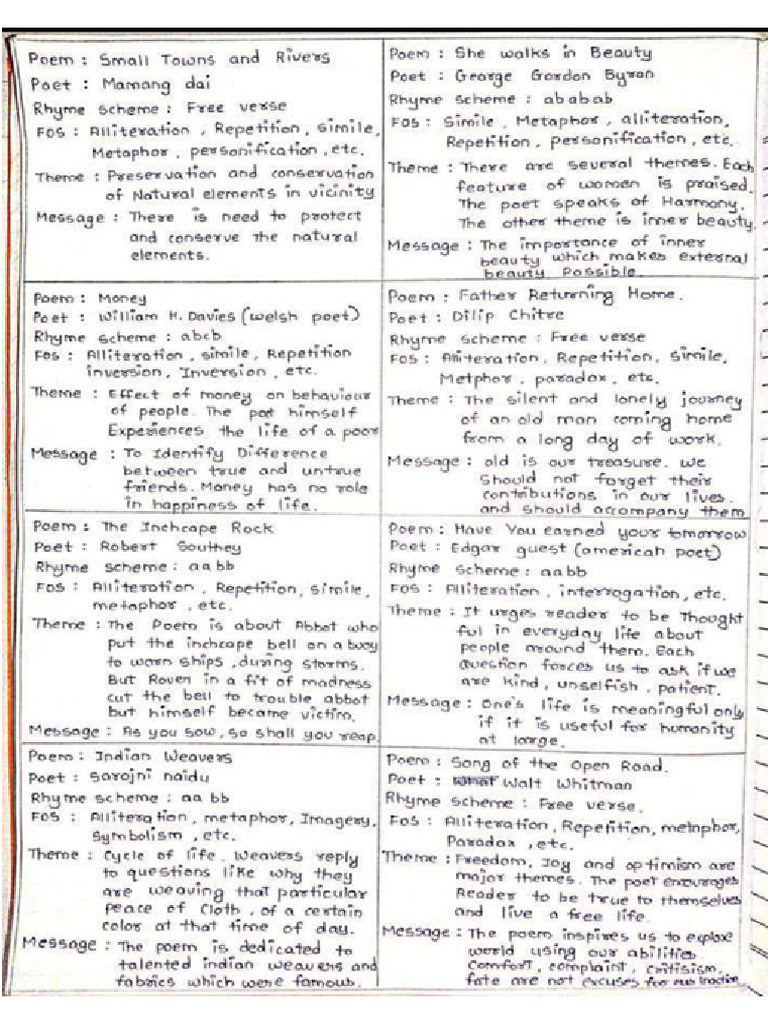 Poem : Small Towns and Rivers
Poet : Mamang dai
Rhyme scheme : Free verse
FOS : Alliteration , Repetition, simile,
Metaphor , personification , etc.
Theme : Preservation and conservation
of Natural elements in vicinity
Message : There is need to protect
and conserve the natural
elements.
Poem : She walks in Beauty
Poet : George Gordon Byron
Rhyme scheme : ababab
FOS : Simile, Metaphor , alliteration,
Repetition, personification, etc.
Theme : There are several themes. Each
feature of women is praised.
The poet speaks of Harmony.
The other theme is inner beauty.
Message : The importance of inner
beauty which makes external
beauty Possible.
Poem : Money
Poet : William H. Davies (welsh poet)
Rhyme scheme : abcb
FOS : Alliteration , simile, Repetition
inversion, Inversion , etc.
Theme : Effect of money on behaviour
of people. The poet himself
Experiences the life of a poor
Message : To Identify Difference
between true and untrue
friends. Money has no role
in happiness of life.
Poem : Father Returning Home.
Poet : Dilip Chitre
Rhyme scheme : Free verse
FOS : Alliteration, Repetition, simile,
Metphor , paradox , etc.
Theme : The silent and lonely journey
of an old man coming home
from a long day of work.
Message : old is our treasure. we
should not forget their
contributions in our lives.
and should accompany them
Poem : The Inchcape Rock
Poet : Robert Southey
Rhyme scheme : aabb
FOS : Alliteration , Repetition, simile,
metaphor , etc.
Theme : The Poem is about Abbot who
put the inchcape bell on a buoy
to warn ships , during storms.
But Roven in a fit of madness
cut the bell to trouble abbot
but himself became victim.
Message : As you sow, so shall you reap.
Poem : Have You earned your tomorrow
Poet : Edgar guest (american poet)
Rhyme scheme : aabb
FOS : Alliteration , interrogation , etc.
Theme : It urges reader to be Thought
ful in everyday life about
people around them. Each
Question forces us to ask if we
are kind, unselfish , patient.
Message : One's life is meaningful only
if it is useful for humanity
at large.
Poem : Indian Weavers
Poet : Sarojni naidu
Rhyme scheme : aa bb
FOS : Alliteration, metaphor, Imagery,
Symbolism , etc.
Theme : Cycle of life. Weavers reply
to questions like why they
are weaving that particular
Peace of Cloth , of a certain
color at that time of day.
Message : The poem is dedicated to
talented indian weavers and
fabrics which were famous.
Poem : Song of the Open Road.
Poet : Walt Whitman
Rhyme scheme : Free verse.
FOS : Alliteration, Repetition, metaphor,
Paradox , etc.
Theme : Freedom, Joy and optimism are
major themes. The poet encourages
Reader to be true to themselves
and live a free life.
Message : The poem inspires us to explore
world using our abilities
Comfort, complaint, critisism,
fate are not excuses for our inaction